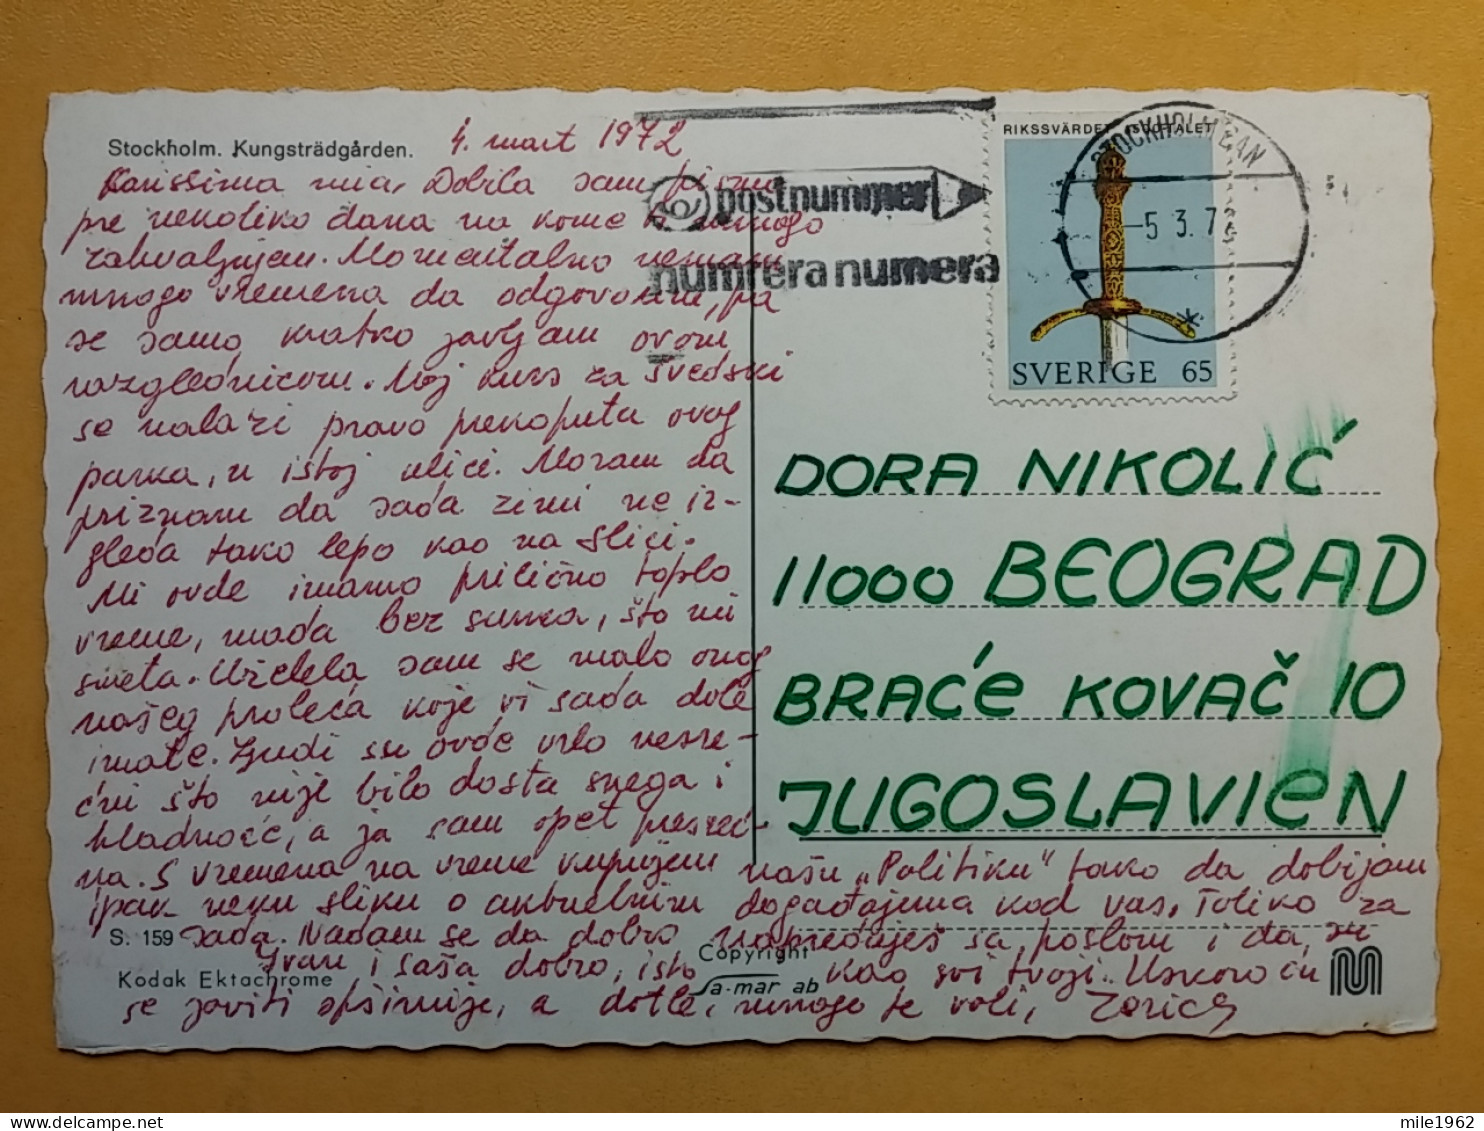 Stockholm. Kungsträdgården.
4. mart 1972
Karissima mia, Dobila sam pismo
pre nekoliko dana na kome ti mnogo
zahvaljujem. Momentalno nemam
mnogo vremena da odgovorim, pa
se samo kratko javljam ovom
razglednicom. Moj kurs za švedski
se nalazi pravo prekoputa ovog
parka, u istoj ulici. Moram da
priznam da sada zimi ne iz-
gleda tako lepo kao na slici.
Mi ovde imamo prilično toplo
vreme, mada bez sunca, što mi
smeta. Uželela sam se malo onog
našeg proleća koje vi sada dole
imate. Ljudi su ovde vrlo nesre-
ćni što nije bilo dosta snega i
hladnoće, a ja sam opet presreć-
na. S vremena na vreme kupujem našu „Politiku" tako da dobijam
ipak neku sliku o aktuelnim događajima kod vas. Toliko za
sada. Nadam se da dobro napreduješ sa poslom i da su
Ivan i Saša dobro, isto kao svi tvoji. Uskoro ću
se javiti opširnije, a dotle, mnogo te voli, Zorica
S. 159
Kodak Ektachrome
Copyright
Sa-mar ab
postnummer
numrera numera
RIKSSVÄRDET 1500-TALET
STOCKHOLM BAN
-5 3.72
SVERIGE 65
DORA NIKOLIĆ
11000 BEOGRAD
BRAĆE KOVAČ 10
JUGOSLAVIEN
mile1962